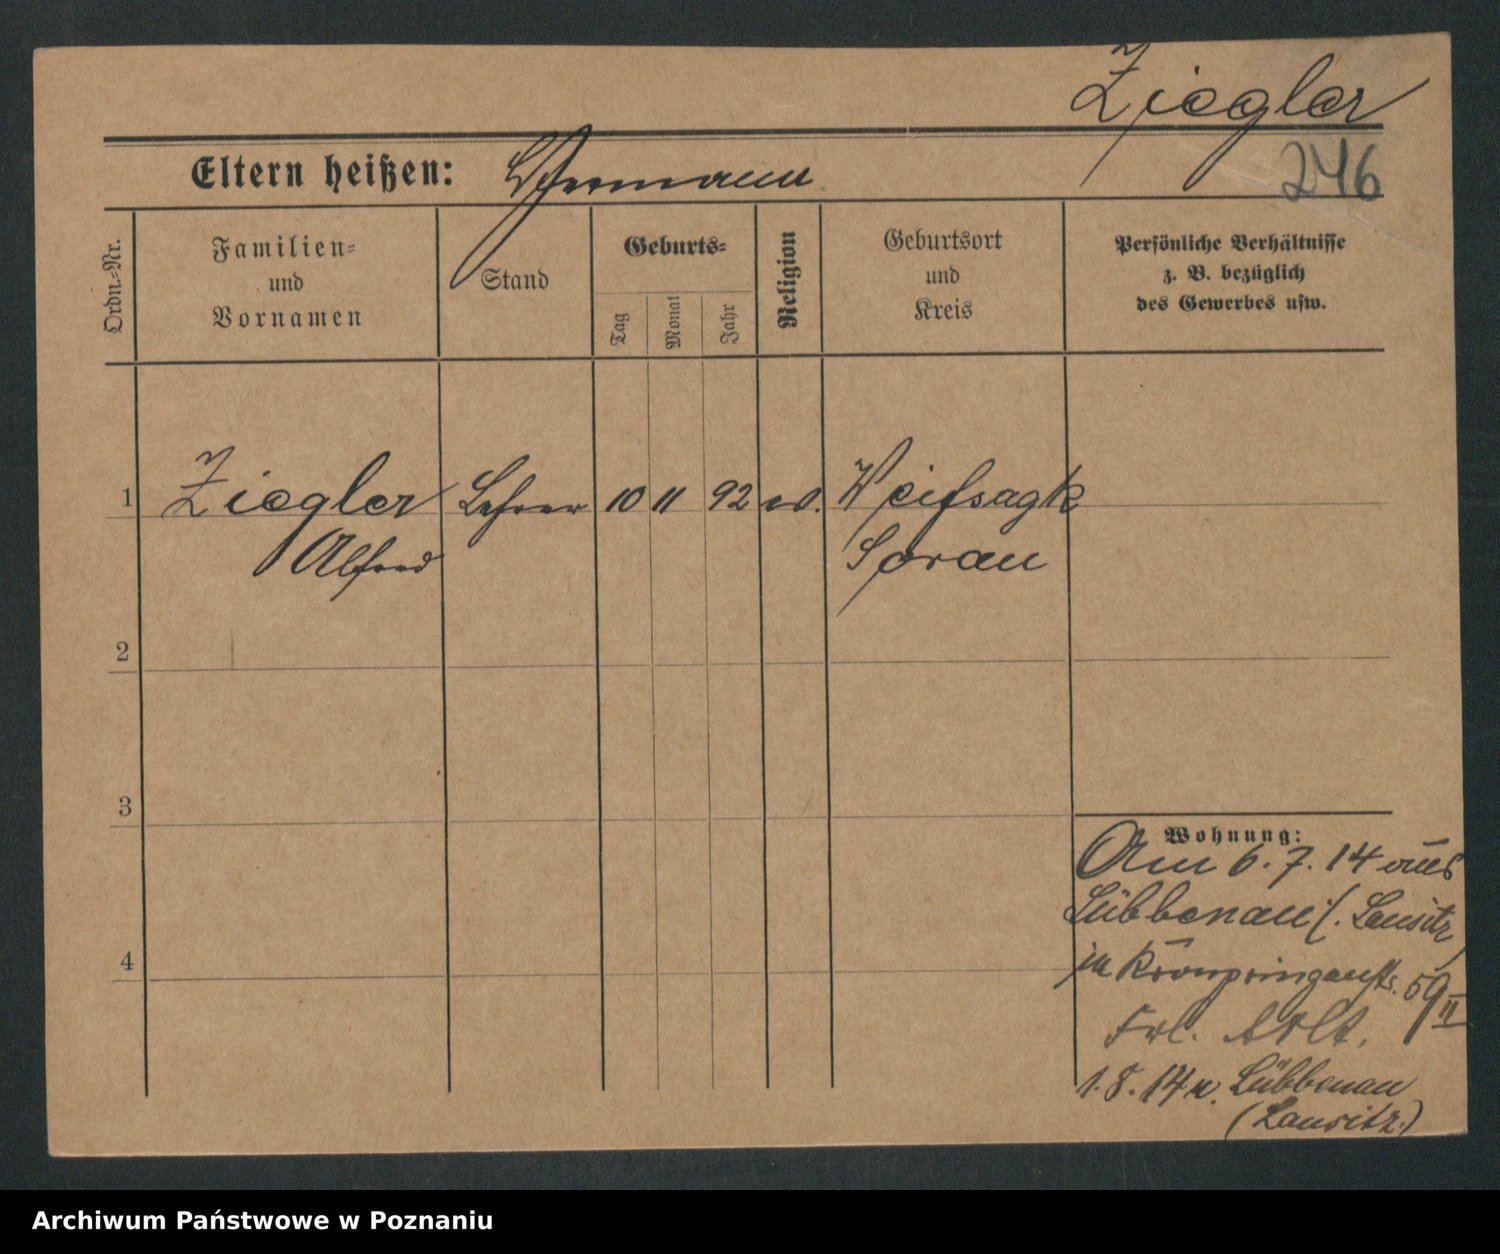 Ziegler
246
Eltern heißen: Hermann
Ordn.=Nr.
Familien=
und
Vornamen
Stand
Geburts=
Tag
Monat
Jahr
Religion
Geburtsort
und
Kreis
Persönliche Verhältnisse
z. B. bezüglich
des Gewerbes usw.
1 Ziegler Lehrer 10 11 92 ev. Weissagk
Alfred Sorau
2
3
4
Wohnung:
Am 6. 7. 14 aus
Lübbenau /. Lausitz
in Kronprinzenstr. 59 II
Frl. Arlt.
1. 8. 14 n. Lübbenau
(Lausitz.)
Archiwum Państwowe w Poznaniu